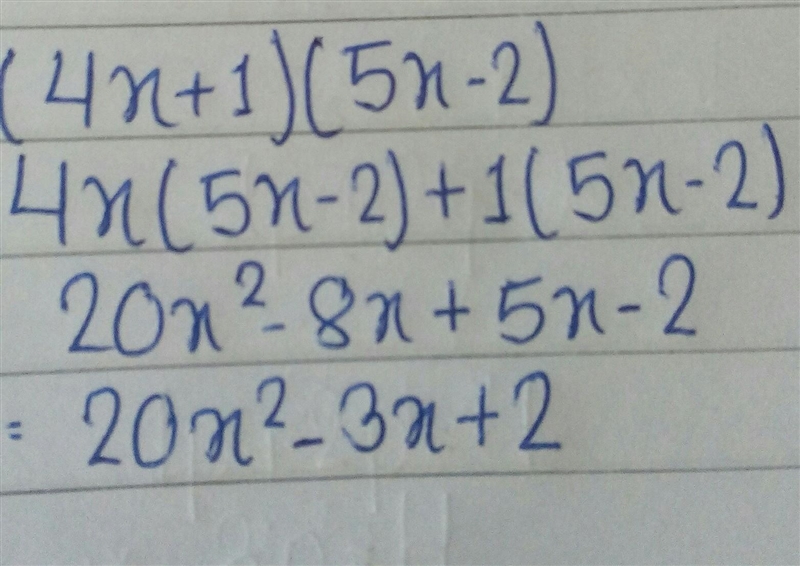 (4x+1)(5x-2)
4x(5x-2)+1(5x-2)
20x²-8x+5x-2
= 20x²-3x+2